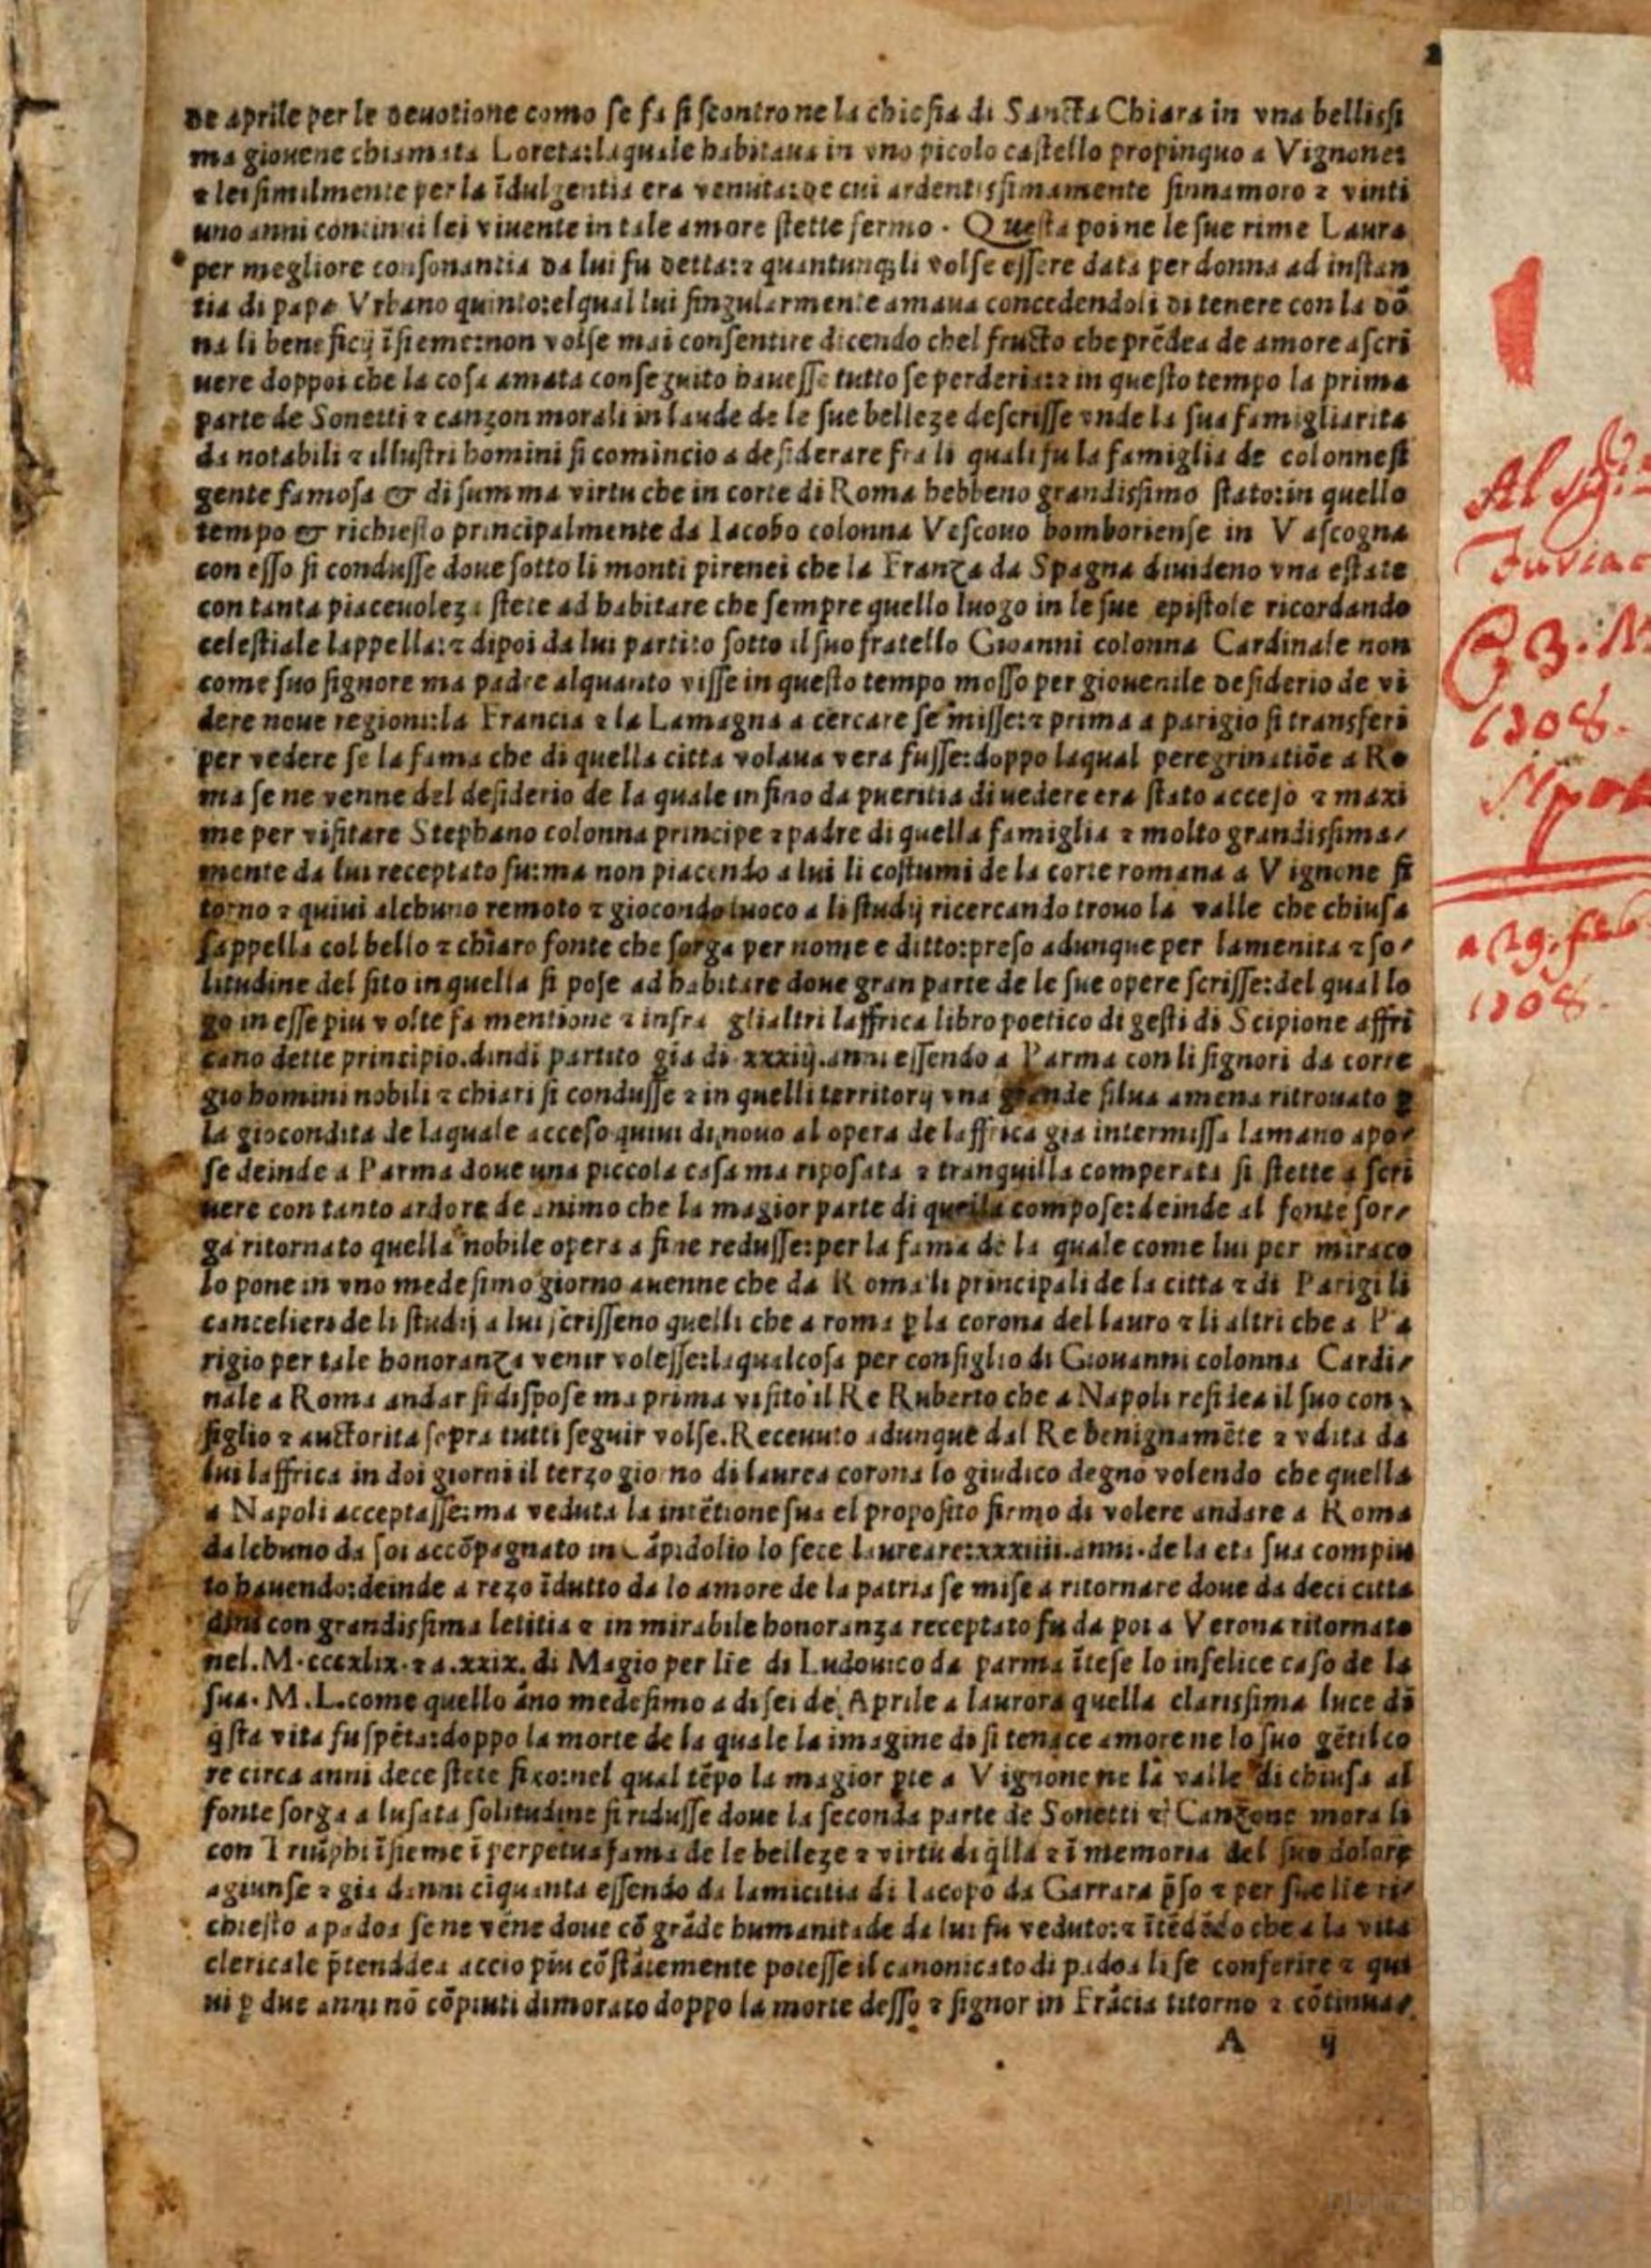 2
de aprile per le deuotione como se fa si scontro ne la chiesia di Sancta Chiara in vna bellissi
ma giouene chiamata Loreta: laquale habitaua in vno picolo castello propinquo a Vignone:
e lei similmente per la īdulgentia era venuta: de cui ardentissimamente sinnamoro ⁊ vinti
uno anni continui lei viuente in tale amore stette fermo. Questa poi ne le sue rime Laura
per megliore consonantia da lui fu detta: ⁊ quantunq; li volse essere data per donna ad instan
tia di papa Vrbano quinto: el qual lui singularmente amaua concedendoli di tenere con la dō
na li beneficij īsieme: non volse mai consentire dicendo chel fructo che prēdea de amore a scri
uere doppoi che la cosa amata conseguito hauesse tutto se perderia: ⁊ in questo tempo la prima
parte de Sonetti ⁊ canzon morali in laude de le sue belleze descrisse vnde la sua famigliarita
da notabili ⁊ illustri homini si comincio a desiderare fra li quali fu la famiglia de colonnesi
gente famosa & di summa virtu che in corte di Roma hebbeno grandissimo stato: in quello
tempo & richiesto principalmente da Iacobo colonna Vescouo bomboriense in Vascogna
con esso si condusse doue sotto li monti pirenei che la Franza da Spagna diuideno vna estate
con tanta piaceuoleza stete ad habitare che sempre quello luogo in le sue epistole ricordando
celestiale lappella: ⁊ dipoi da lui partito sotto il suo fratello Giouanni colonna Cardinale non
come suo signore ma padre alquanto visse in questo tempo mosso per giouenile desiderio de vi
dere noue regioni: la Francia ⁊ la Lamagna a cercare se misse: ⁊ prima a parigio si transferi
per vedere se la fama che di quella citta volaua vera fusse: doppo laqual peregrinatiōe a Ro
ma se ne venne del desiderio de la quale infino da pueritia di uedere era stato acceso ⁊ maxi
me per visitare Stephano colonna principe ⁊ padre di quella famiglia ⁊ molto grandissima/
mente da lui receptato fu: ma non piacendo a lui li costumi de la corte romana a Vignone si
torno ⁊ quiui alchuno remoto ⁊ giocondo luoco a li studij ricercando trouo la valle che chiusa
sappella col bello ⁊ chiaro fonte che sorga per nome e ditto: preso adunque per lamenita ⁊ so/
litudine del sito in quella si pose ad habitare doue gran parte de le sue opere scrisse: del qual lo
go in esse piu volte fa mentione ⁊ infra glialtri laffrica libro poetico di gesti di Scipione affri
cano dette principio. dindi partito gia di xxxiij. anni essendo a Parma con li signori da corre
gio homini nobili ⁊ chiari si condusse ⁊ in quelli territorij vna grande silua amena ritrouato ꝑ
la giocondita de laquale acceso quiui di nouo al opera de laffrica gia intermissa lamano apo/
se deinde a Parma doue una piccola casa ma riposata ⁊ tranquilla comperata si stette a scri
uere con tanto ardore de animo che la magior parte di quella compose: deinde al fonte sor/
ga ritornato quella nobile opera a fine redusse: per la fama de la quale come lui per miraco
lo pone in vno medesimo giorno auenne che da Roma li principali de la citta ⁊ di Parigi li
cancelieri de li studij a lui scrisseno quelli che a roma ꝑ la corona del lauro ⁊ li altri che a Pa
rigio per tale honoranza venir volesse: laqualcosa per consiglio di Giouanni colonna Cardi/
nale a Roma andar si dispose ma prima visito il Re Ruberto che a Napoli residea il suo con
siglio ⁊ auctorita sopra tutti seguir volse. Receuuto adunque dal Re benignamēte ⁊ vdita da
lui laffrica in doi giorni il terzo giorno di laurea corona lo giudico degno volendo che quella
a Napoli acceptasse: ma veduta la intētione sua el proposito firmo di volere andare a Roma
dalchuno da soi accōpagnato in Cāpidolio lo fece laureare: xxxiiii. anni. de la eta sua compiu
to hauendo: deinde a rezo īdutto da lo amore de la patria se mise a ritornare doue da deci citta
dini con grandissima letitia ⁊ in mirabile honoranza receptato fu da poi a Verona ritornato
nel. M.cccxlix. ⁊ a. xxix. di Magio per lſe di Ludouico da parma ītese lo infelice caso de la
sua. M. L. come quello āno medesimo a di sei de Aprile a laurora quella clarissima luce di
q̄sta vita fu spēta: doppo la morte de la quale la imagine di si tenace amore ne lo suo gētil co
re circa anni dece stete fixo: nel qual tēpo la magior ꝑte a Vignone ne la valle di chiusa al
fonte sorga a lusata solitudine si ridusse doue la seconda parte de Sonetti ⁊ Canzone morali
con Triūphi īsieme ī perpetua fama de le belleze ⁊ virtu di q̄lla ⁊ ī memoria del suo dolore
agiunse ⁊ gia danni ciquanta essendo da lamicitia di Iacopo da Carrara p̄so ⁊ per sue lſe ri/
chiesto a padoa se ne vēne doue cō grāde humanitade da lui fu veduto: ⁊ ītēdēdo che a la vita
clericale p̄tendea accio piu cōstātemente potesse il canonicato di padoa li fe conferire ⁊ qui
ui ꝑ due anni nō cōpiuti dimorato doppo la morte desso ⁊ signor in Frācia titorno ⁊ cōtinuar
A ij
1308.
1308.